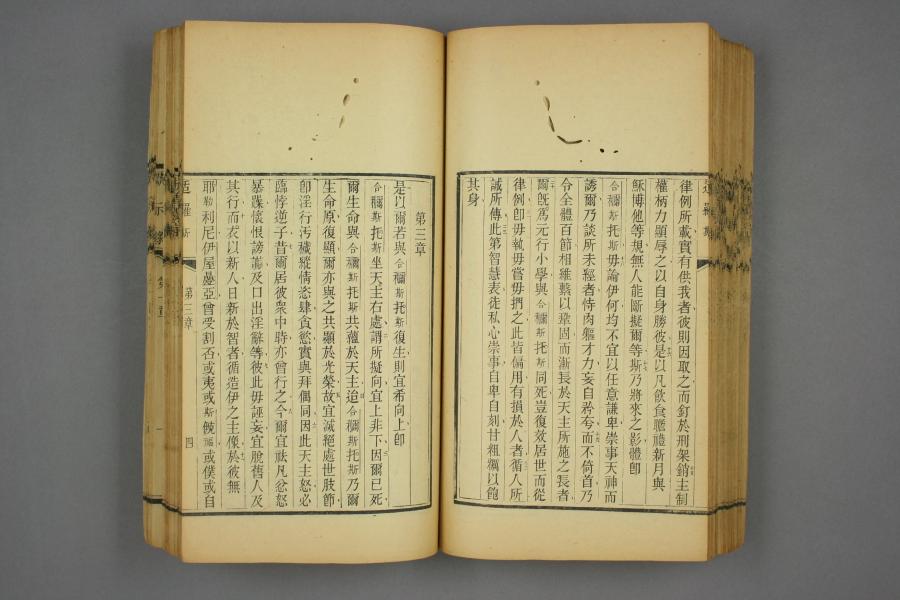 律例所載實有供我者彼則因取之而釘於刑架銷主制
權柄力顯辱之以自身勝彼是以凡飲食瞻禮新月與
穌博他等規無人能斷擬爾等斯乃將來之影體卽
合穪斯托斯毋論伊何均不宜以任意謙卑崇事天神而
誘爾乃談所未經者恃肉軀才力妄自矜夸而不倚首乃
令全體百節相維繫以鞏固而漸長於天主所施之長者
爾旣為元行小學與合穪斯托斯同死豈復效居世而從
律例卽毋執毋嘗毋捫之此皆偏用有損於人者循人所
誡所傳此第智慧表徒私心崇事自卑自刻甘粗糲以飽
其身
第三章
是以爾若與合穪斯托斯復生則宜希向上卽
合穪斯托斯坐天主右處謂所擬向宜上非下因爾已死
爾生命與合穪斯托斯共蘊於天主迨合穪斯托斯乃爾
生命原復顯爾亦與之共顯於光榮故宜滅絕處世肢節
卽淫行汚穢縱情恣肆貪慾實與拜偶同因此天主怒必
臨悖逆子昔爾居彼衆中時亦曾行之今爾宜祛凡忿怒
暴躁懷恨謗讟及口出淫辭等彼此毋誣妄宜脫舊人及
其行而衣以新人日新於智者循造伊之主像於彼無
耶勒利尼伊屋亞曾受割否或夷或斯饒或僕或自
适羅斯
第三章
四